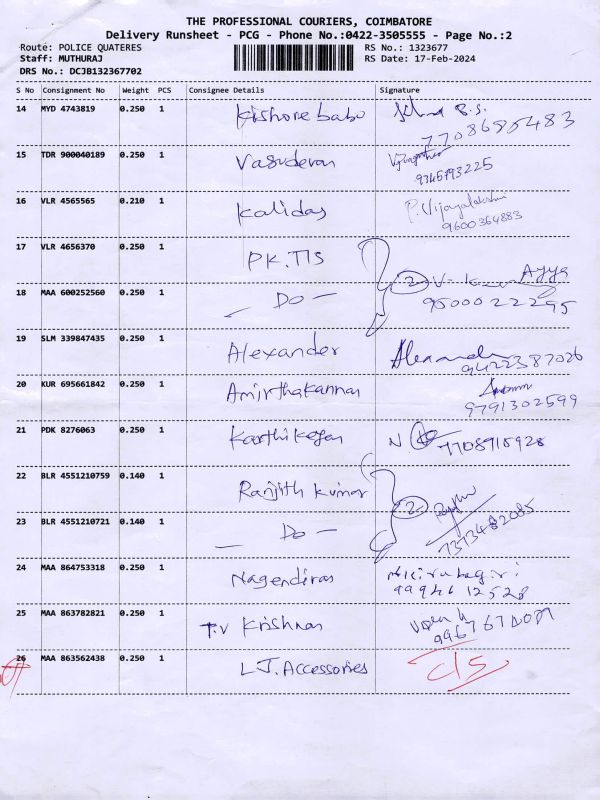 THE PROFESSIONAL COURIERS, COIMBATORE
Delivery Runsheet - PCG - Phone No.:0422-3505555 - Page No.:2
Route: POLICE QUATERES RS No.: 1323677
Staff: MUTHURAJ RS Date: 17-Feb-2024
DRS No.: DCJB132367702
S No Consignment No Weight PCS Consignee Details Signature
14 MYD 4743819 0.250 1 Kishore babu
7708685483
15 TDR 900040189 0.250 1 Vasudevan
9345793225
16 VLR 4565565 0.210 1 Kalidas P. Vijayalakshmi
9600364883
17 VLR 4656370 0.250 1 PK.TIS
18 MAA 600252560 0.250 1 — Do — 2 Ayya
9500022295
19 SLM 339847435 0.250 1 Alexander
9422387026
20 KUR 695661842 0.250 1 Amirthakannan
9791302599
21 PDK 8276063 0.250 1 Karthikeyan N 7708915928
22 BLR 4551210759 0.140 1 Ranjith Kumar
23 BLR 4551210721 0.140 1 — Do — 2
7373482085
24 MAA 864753318 0.250 1 Nagendiran
9994612528
25 MAA 863782821 0.250 1 T.V Krishnan
26 MAA 863562438 0.250 1 L.J. Accessories C/S